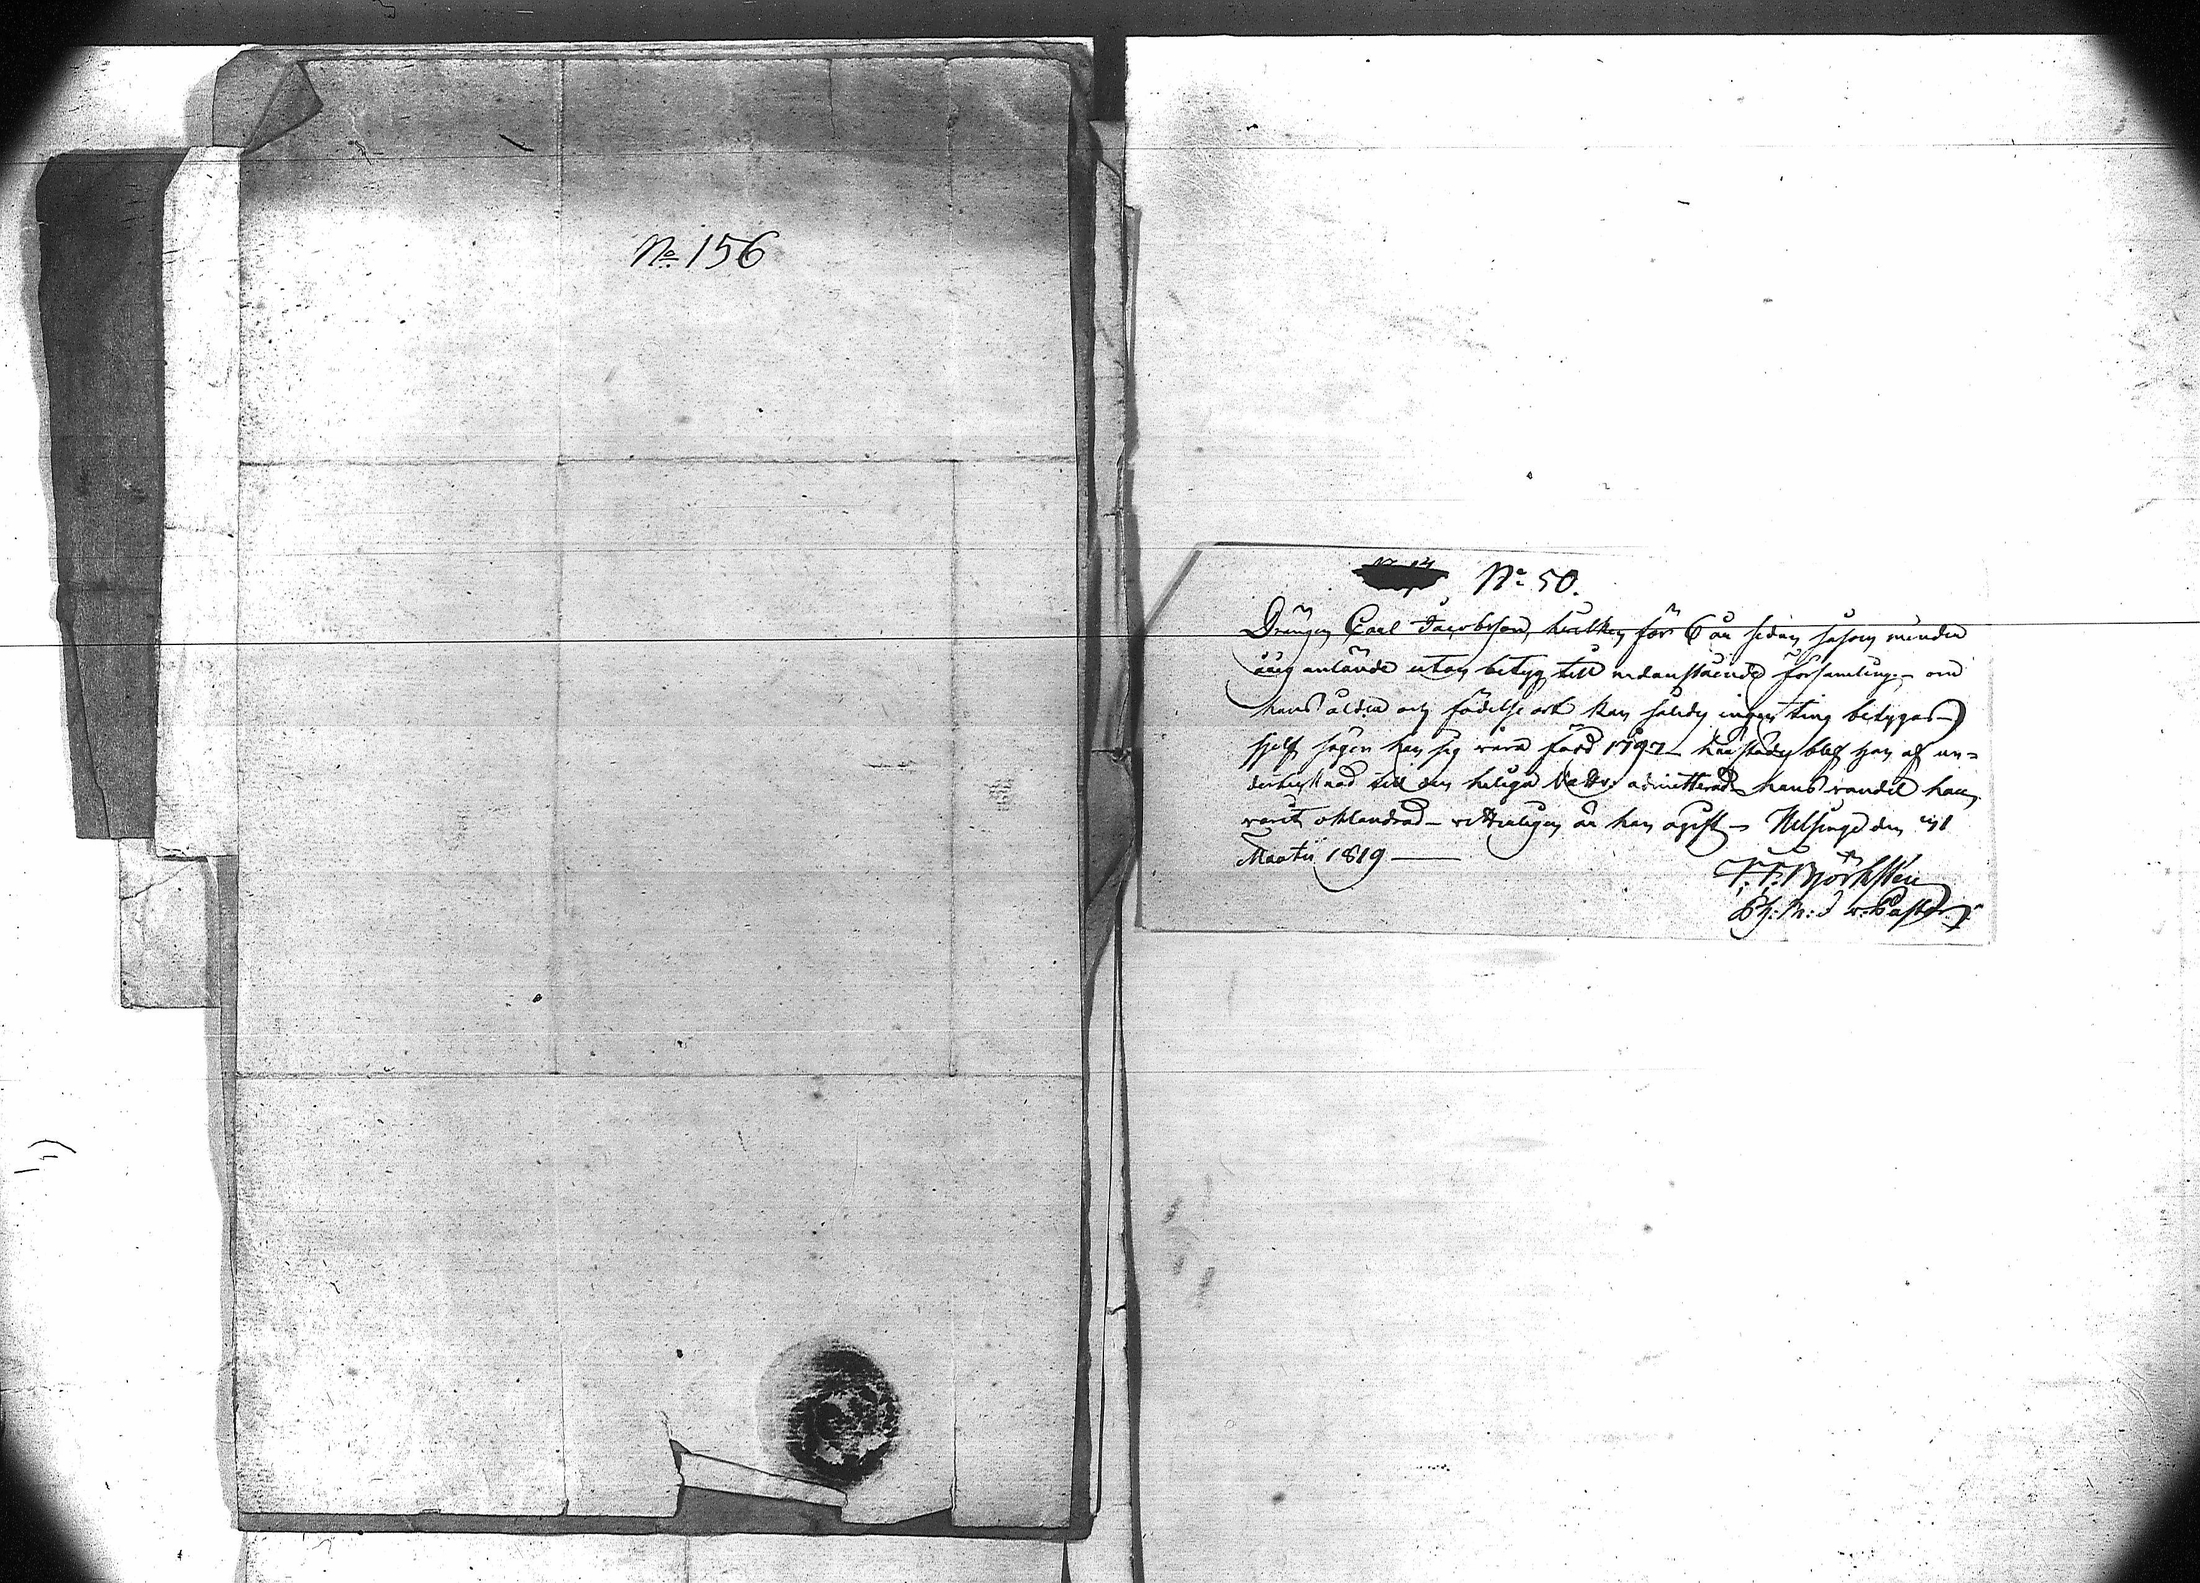 No 156
No 50.
Drängen Carl Jacobsson, hvilken för 6 år sedan såsom minder
årig anlände utan betyg till nedanstående församling, om
hans ålder och födelse ort kan således ingen ting betygas
sjelf säger han sig vara född 1797 härstädes blef han af un=
dertecknad till den heliga Nattv: admitterad hans vandel har
varit oklandrad vitterligen är han ogift Helsinge den
Martii 1819
Björksten
v. Pastor